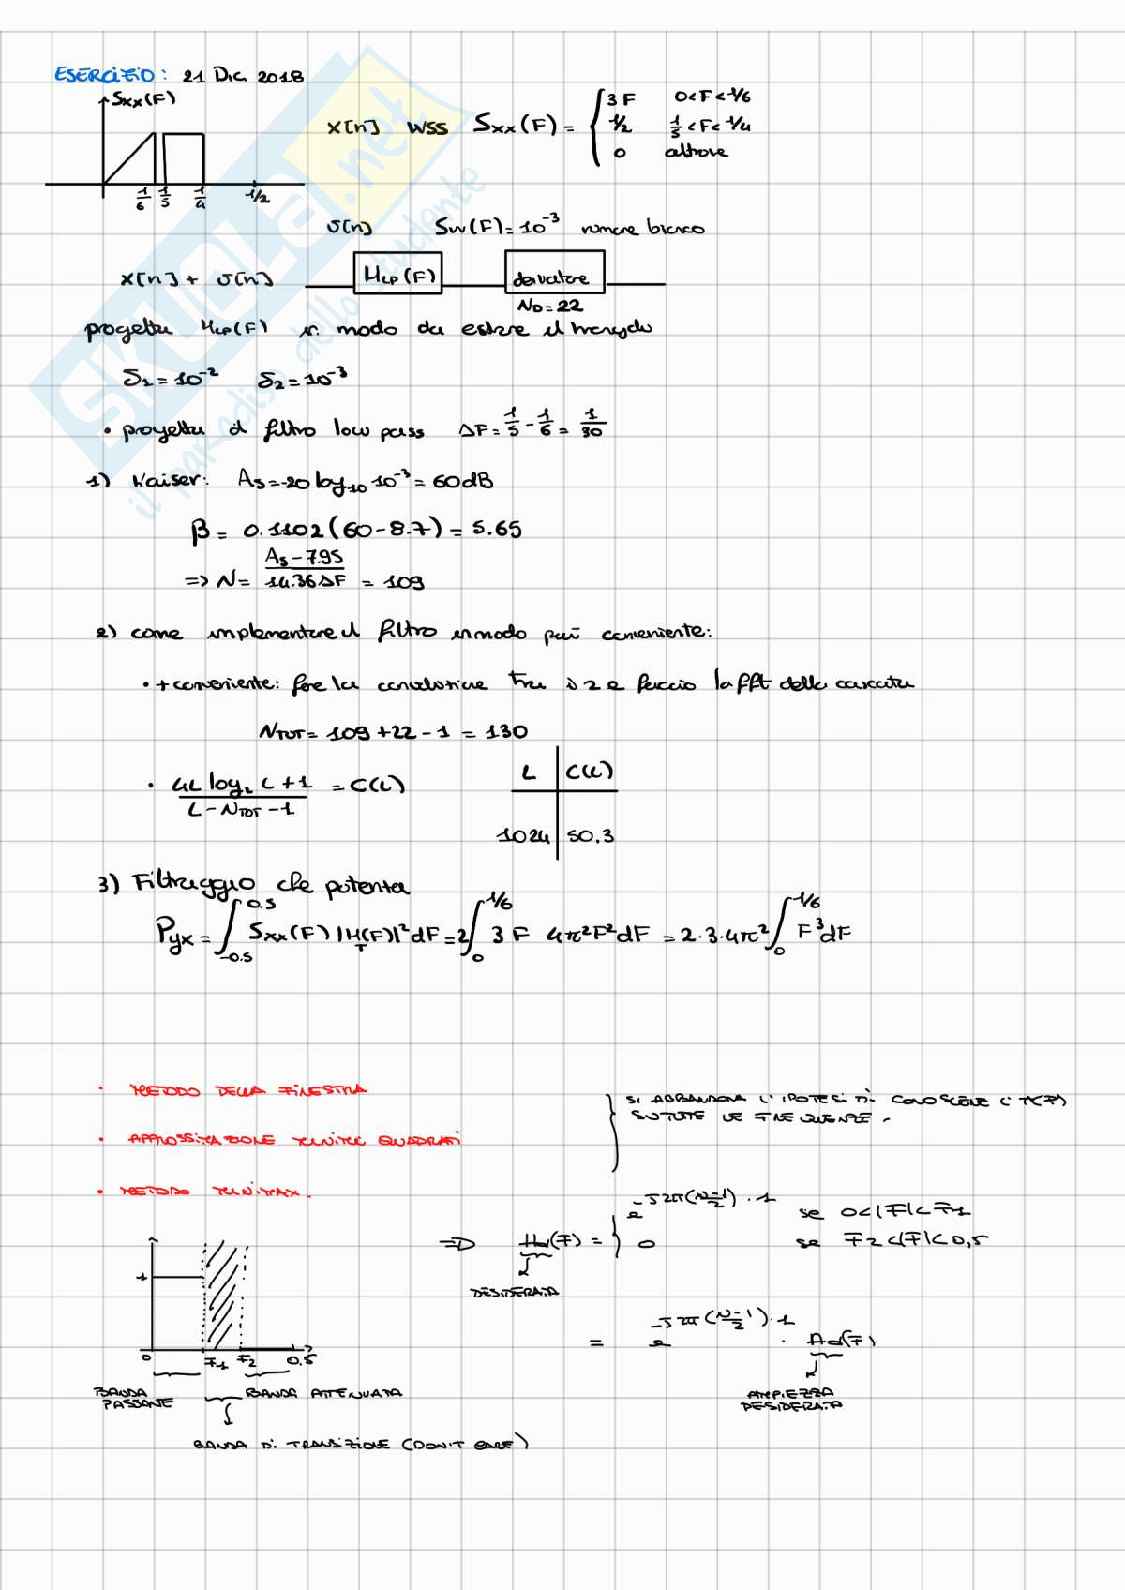 ESERCIZIO: 21 Dic. 2018
Sxx(F)
1/6 1/5 1/4 1/2
x[n] WSS Sxx(F) = { 3F 0<F<1/6
1/2 1/5<F<1/4
0 altrove
v[n] Svv(F)=10^-3 rumore bianco
x[n] + v[n] HLP(F) derivatore
ND=22
progetta HLP(F) in modo da estrarre il triangolo
δ1=10^-2 δ2=10^-3
• progetta il filtro low pass ΔF= 1/5 - 1/6 = 1/30
1) Kaiser: As=-20 log10 10^-3 = 60dB
β = 0.1102(60-8.7) = 5.65
=> N= (As-7.95)/(14.36ΔF) = 109
2) come implementare il filtro in modo più conveniente:
• + conveniente: fare la convoluzione tra i 2 e faccio la fft della cascata
NTOT= 109+22-1 = 130
• (4L log2 L+1)/(L-NTOT-1) = C(L)
L C(L)
1024 50.3
3) Filtraggio che potenza
Pyx = ∫_{-0.5}^{0.5} Sxx(F) |HT(F)|² dF = 2∫_0^{1/6} 3F 4π²F² dF = 2·3·4π² ∫_0^{1/6} F³ dF
• METODO DELLA FINESTRA
• APPROSSIMAZIONE MINIMI QUADRATI
• METODO MINIMAX.
} SI ABBANDONA L'IPOTESI DI CONOSCERE L' H(F)
SU TUTTE LE FREQUENZE.
1
0 F1 F2 0.5
BANDA PASSANTE
BANDA ATTENUATA
BANDA DI TRANSIZIONE (DON'T CARE)
=> Hd(F) = } e^{-J2π((N-1)/2)}·1 se 0<|F|<F1
0 se F2<|F|<0,5
DESIDERATA
= e^{-J2π((N-1)/2)·1} · Ad(F)
AMPIEZZA
DESIDERATA
SKUOLA.net
il paradiso dello studente